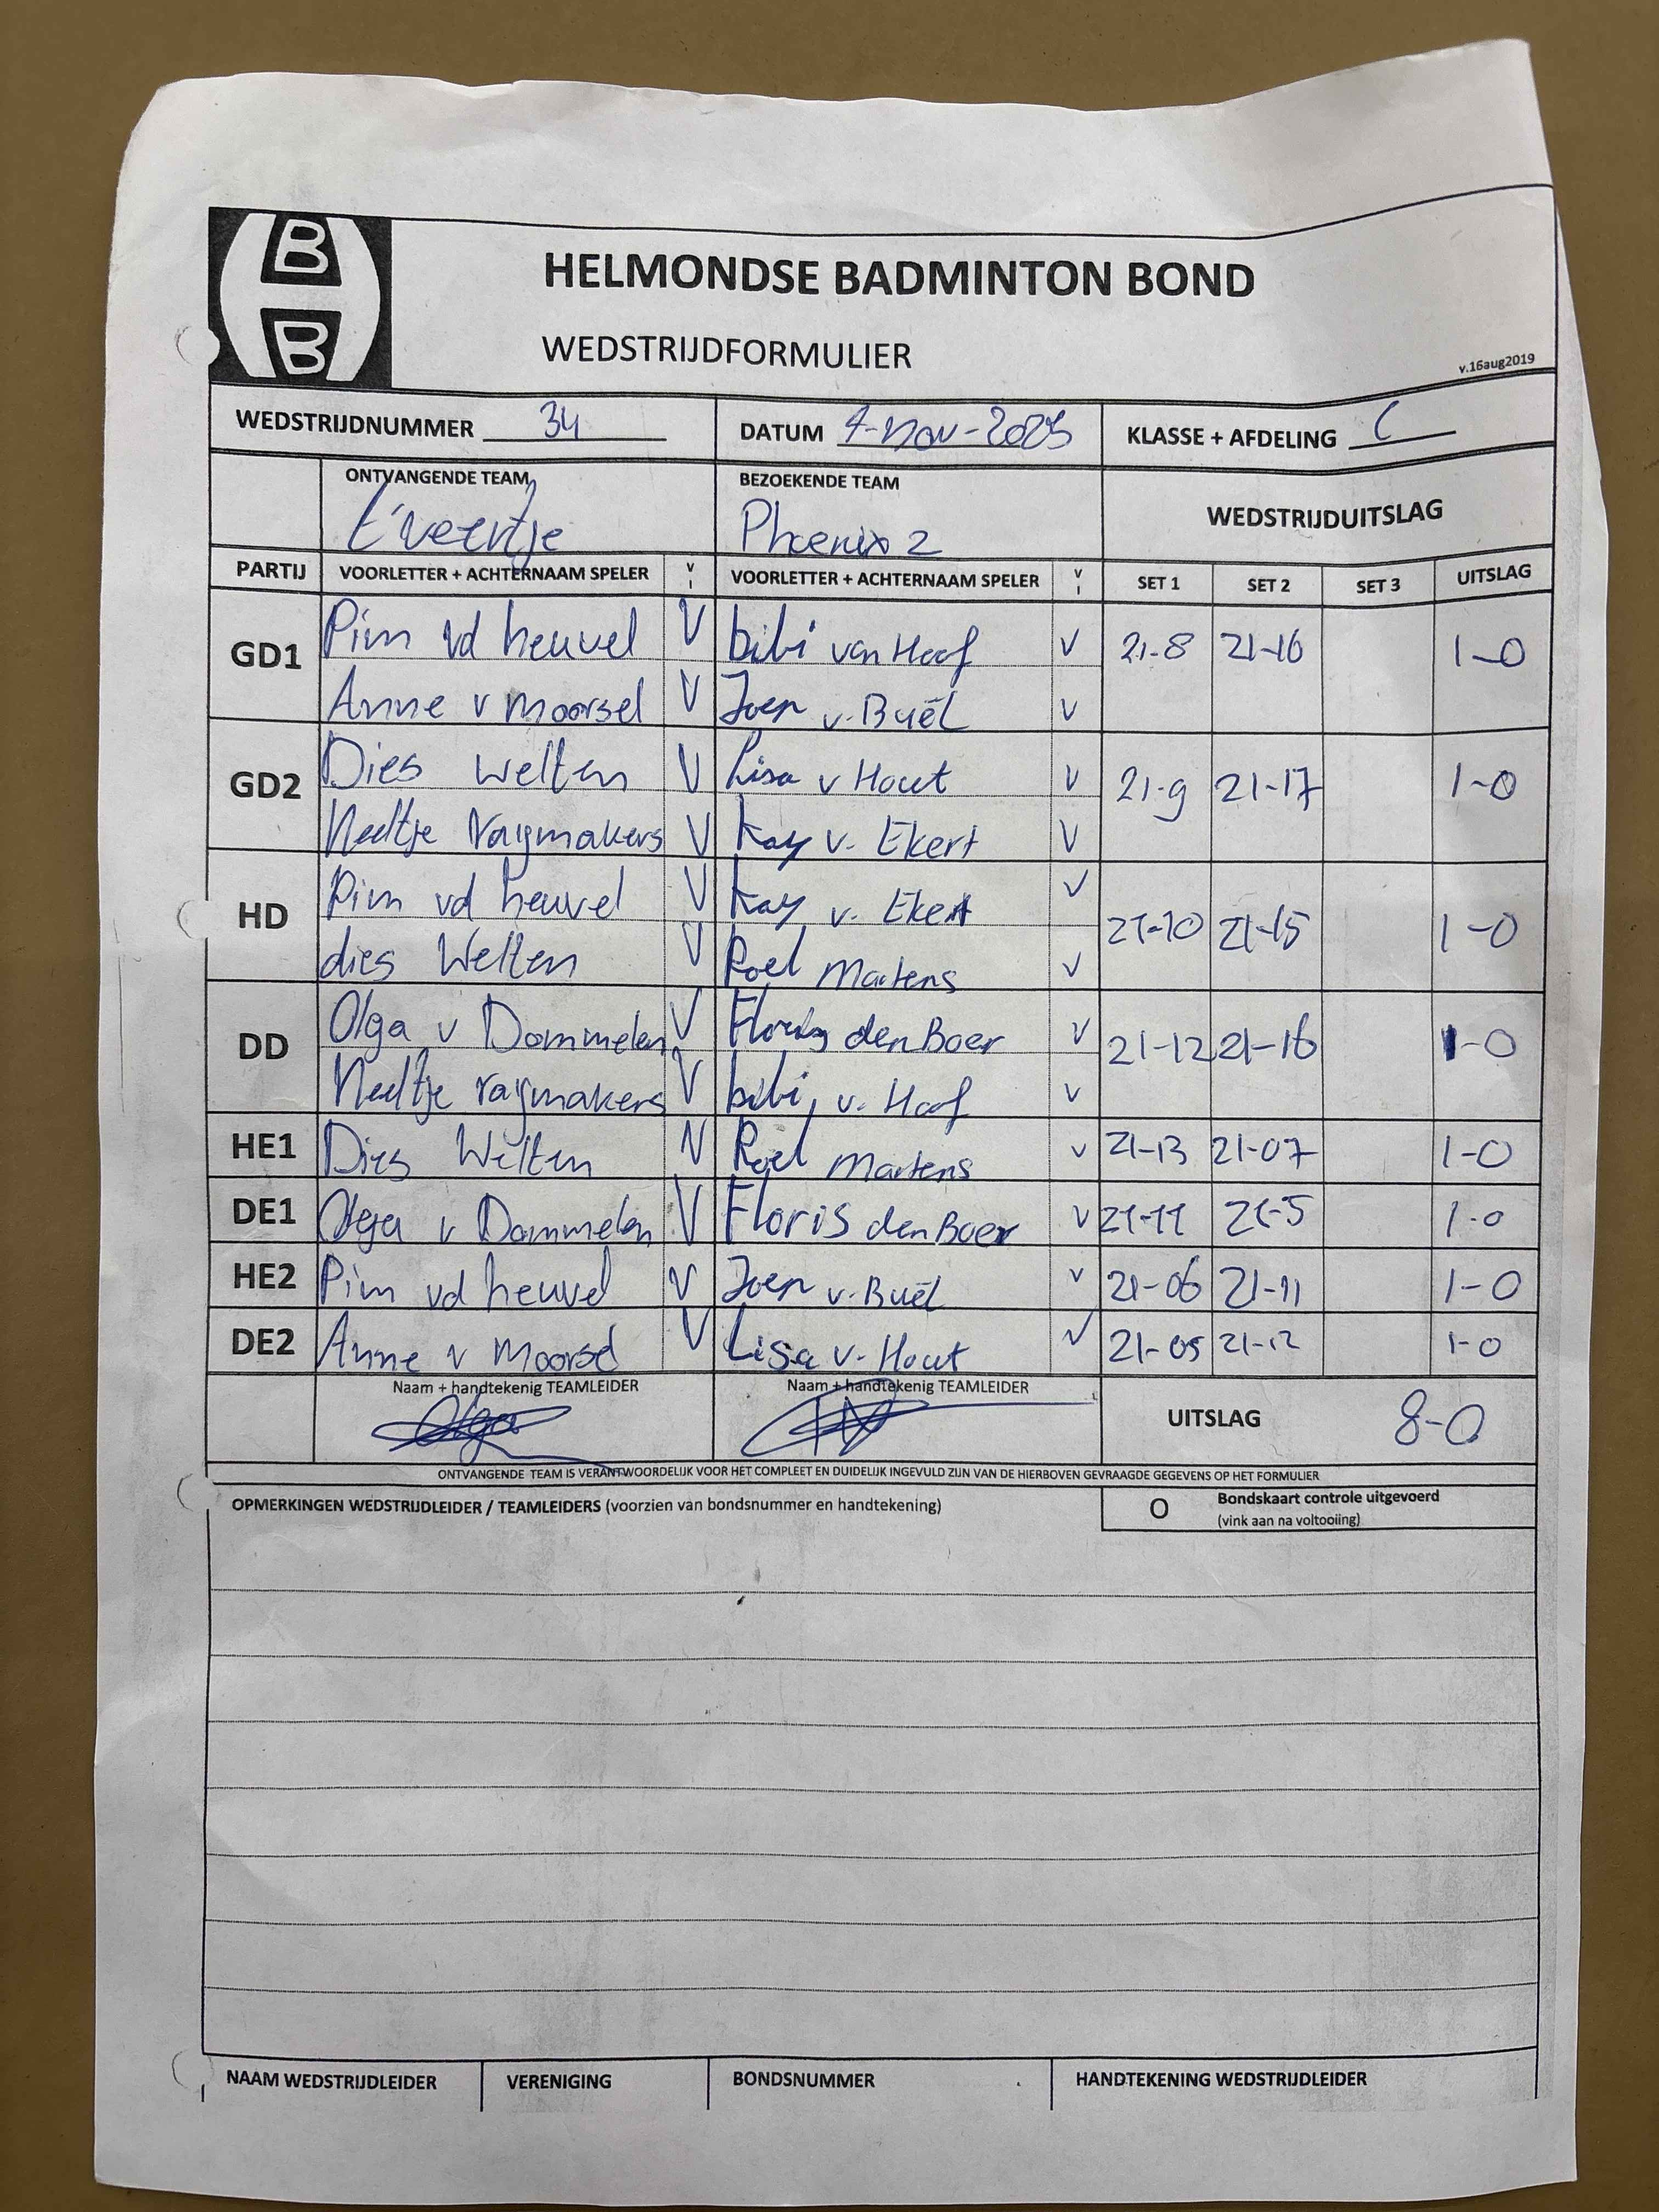 B
B
HELMONDSE BADMINTON BOND
WEDSTRIJDFORMULIER
v.16aug2019
WEDSTRIJDNUMMER 34 DATUM 7-nov-2025 KLASSE + AFDELING C
ONTVANGENDE TEAM BEZOEKENDE TEAM WEDSTRIJDUITSLAG
t'veertje Phoenix 2
PARTIJ VOORLETTER + ACHTERNAAM SPELER V I VOORLETTER + ACHTERNAAM SPELER V I SET 1 SET 2 SET 3 UITSLAG
GD1 Pim vd heuvel V bibi van Hoof V 21-8 21-16 1-0
Anne v moorsel V Joep v. Buël V
GD2 Dies welten V Lisa v Hout V 21-9 21-17 1-0
Neeltje raymakers V Kay v. Ekert V
HD Pim vd heuvel V Kay v. Ekert V 21-10 21-15 1-0
dies Welten V Roel Martens V
DD Olga v Dommelen V Floris den Boer V 21-12 21-16 1-0
Neeltje raymakers V bibi v. Hoof V
HE1 Dies Welten V Roel Martens V 21-13 21-07 1-0
DE1 Olga v Dommelen V Floris den Boer V 21-11 21-5 1-0
HE2 Pim vd heuvel V Joep v. Buël V 21-06 21-11 1-0
DE2 Anne v Moorsel V Lisa v. Hout V 21-05 21-12 1-0
Naam + handtekenig TEAMLEIDER Naam + handtekenig TEAMLEIDER
Olga UITSLAG 8-0
ONTVANGENDE TEAM IS VERANTWOORDELIJK VOOR HET COMPLEET EN DUIDELIJK INGEVULD ZIJN VAN DE HIERBOVEN GEVRAAGDE GEGEVENS OP HET FORMULIER
OPMERKINGEN WEDSTRIJDLEIDER / TEAMLEIDERS (voorzien van bondsnummer en handtekening) O Bondskaart controle uitgevoerd
(vink aan na voltooiing)
NAAM WEDSTRIJDLEIDER VERENIGING BONDSNUMMER HANDTEKENING WEDSTRIJDLEIDER